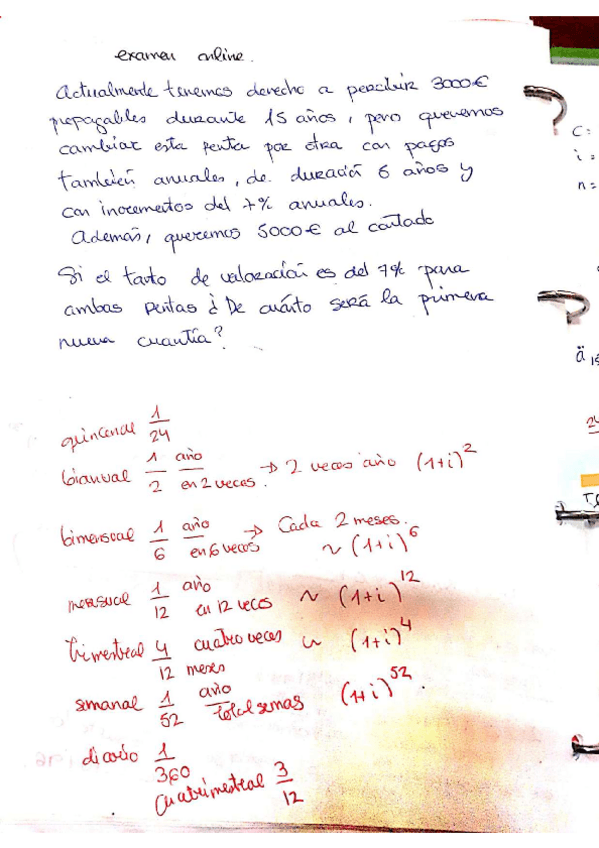 examen online.
Actualmente tenemos derecho a percibir 3000€
prepagables durante 15 años, pero queremos
cambiar esta renta por otra con pagos
también anuales, de duración 6 años y
con incrementos del 7% anuales.
Además, queremos 5000€ al contado
Si el tanto de valoración es del 7% para
ambas rentas ¿De cuánto será la primera
nueva cuantía?
C:
i =
n =
ä 15
24
quincenal 1/24
bianual 1/2 año/en 2 veces. → 2 veces año (1+i)^2
bimensual 1/6 año/en 6 veces → Cada 2 meses. ~ (1+i)^6
mensual 1/12 año/en 12 veces ~ (1+i)^12
trimestral 4/12 cuatro veces/meses ~ (1+i)^4
semanal 1/52 año/total semanas (1+i)^52.
diario 1/360
Cuatrimestral 3/12